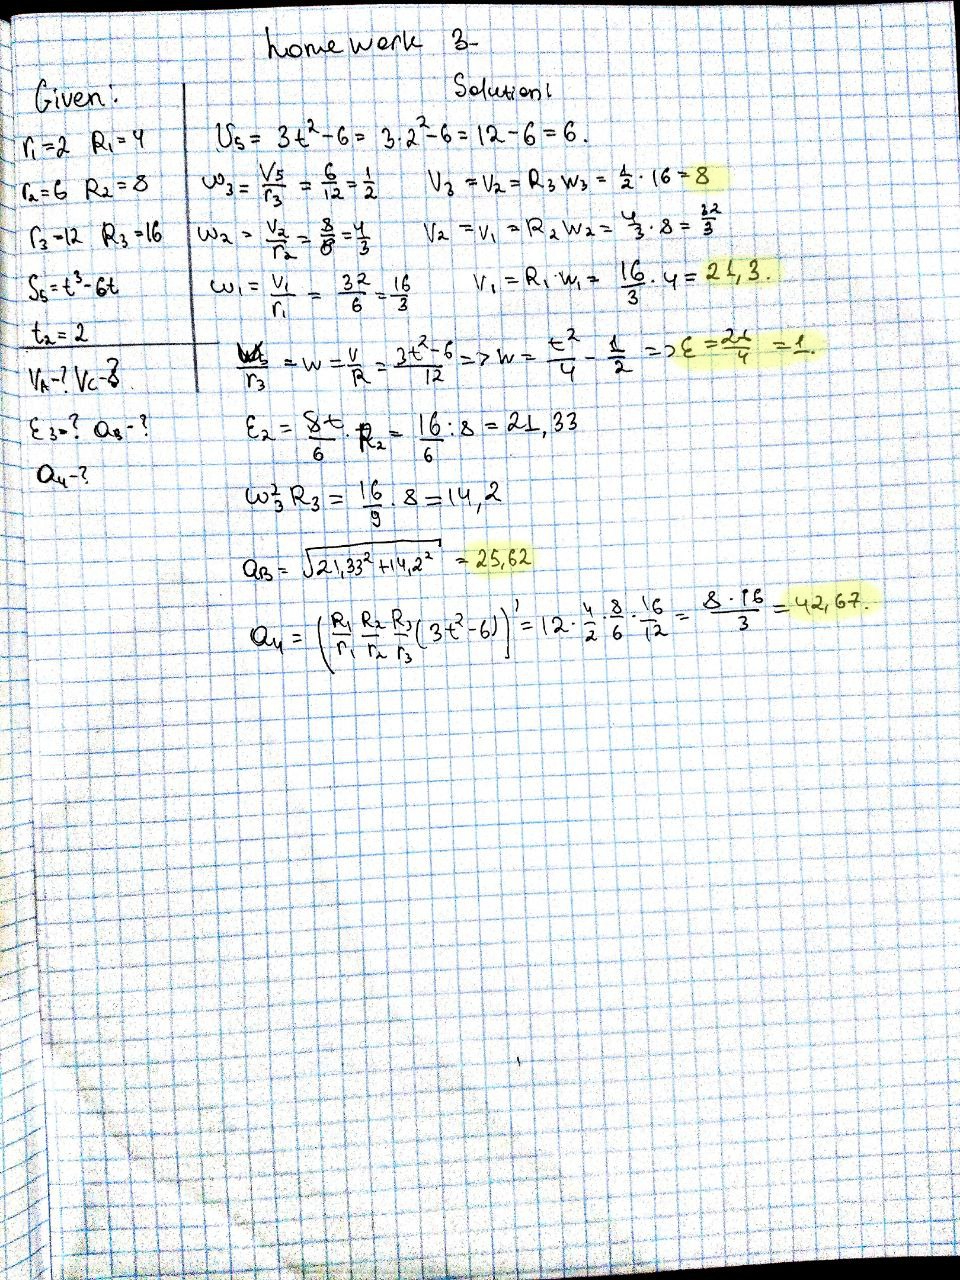 homework 3
Given:
r₁=2 R₁=4
r₂=6 R₂=8
r₃=12 R₃=16
S₅=t³-6t
t₂=2
V_A-? V_C-?
ε₃-? a_B-?
a₄-?
Solution:
U₅ = 3t²-6 = 3·2²-6 = 12-6 = 6.
ω₃ = V₅/r₃ = 6/12 = 1/2 V₃ = V₂ = R₃W₃ = 1/2 · 16 = 8
ω₂ = V₂/r₂ = 8/6 = 4/3 V₂ = V₁ = R₂W₂ = 4/3 · 8 = 32/3
ω₁ = V₁/r₁ = 32/6 = 16/3 V₁ = R₁W₁ = 16/3 · 4 = 21,3.
/r₃ = W = V/R = 3t²-6/12 => W = t²/4 - 1/2 => ε = 2t/4 = 1.
ε₂ = 8t/6 · R₂ = 16/6 : 8 = 21,33
ω²₃R₃ = 16/9 · 8 = 14,2
a_B = √21,33²+14,2² = 25,62
a₄ = (R₁/r₁ R₂/r₂ R₃/r₃ (3t²-6))' = 12 · 4/2 · 8/6 · 16/12 = 8·16/3 = 42,67.